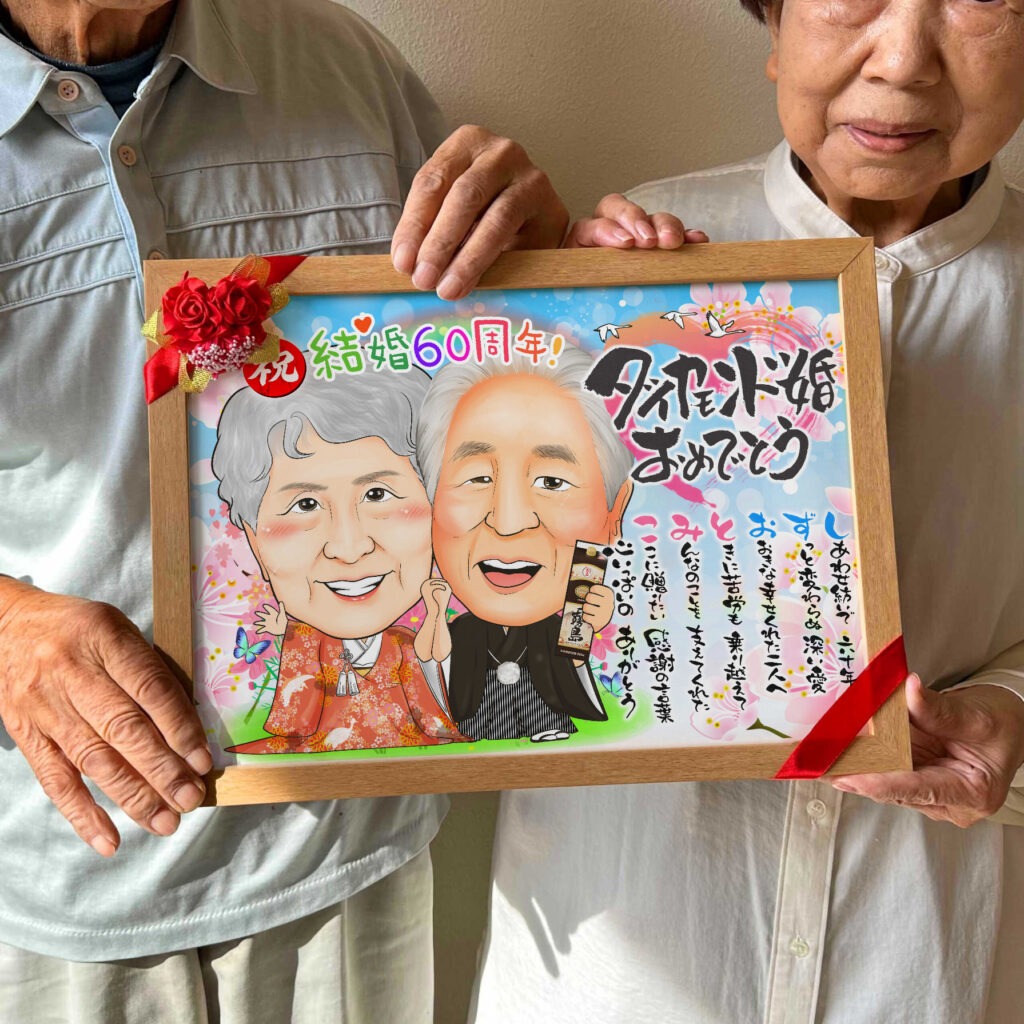 祝
結婚60周年!
ダイヤモンド婚
おめでとう
しあわせ紡いで 六十年
ずっと変わらぬ 深い愛
おおきな幸せくれた二人へ
ときに苦労も 乗り越えて
みんなのことを 支えてくれた
ここに贈りたい 感謝の言葉
心いっぱいの ありがとう
霧島